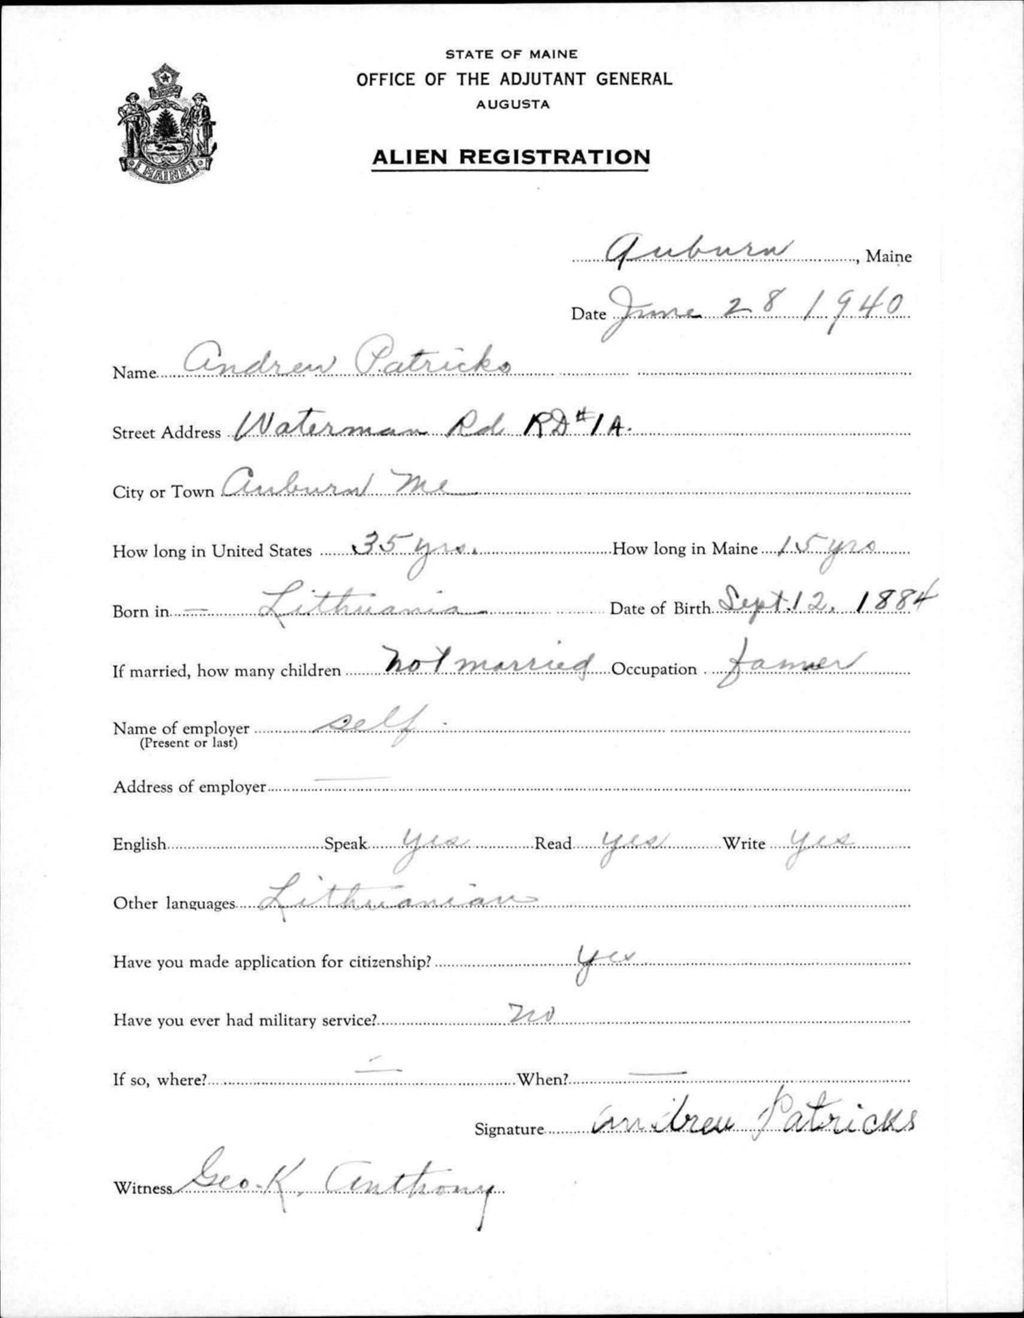 STATE OF MAINE
OFFICE OF THE ADJUTANT GENERAL
AUGUSTA
ALIEN REGISTRATION
MAINE
Auburn, Maine
Date June 28 1940
Name Andrew Patricks
Street Address Waterman Rd RD#1A.
City or Town Auburn Me
How long in United States 35 yrs. How long in Maine 15 yrs
Born in — Lithuania Date of Birth Sept. 12, 1884
If married, how many children not married Occupation farmer
Name of employer self
(Present or last)
Address of employer —
English Speak yes Read yes Write yes
Other languages Lithuanian
Have you made application for citizenship? yes
Have you ever had military service? no
If so, where? — When? —
Signature Andrew Patricks
Witness Geo. K. Anthony